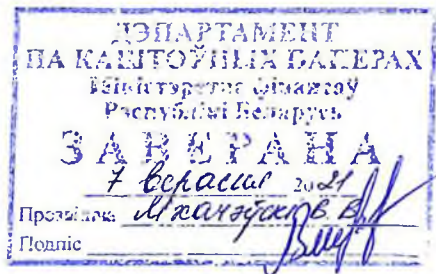 ДЭПАРТАМЕНТ
ПА КАШТОЎНЫХ ПАПЕРАХ
Міністэрства фінансаў
Рэспублікі Беларусь
ЗАВЕРАНА
7 верасня 2021
Прозвішча В. В.
Подпіс